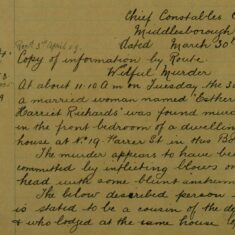 Chief Constables
Middlesborough
Recd 5th April 09.
Dated March 30
Copy of information by Route.
Wilful Murder
At about 11.10 A m on Tuesday, the 30
a married woman named "Esther
Harriet Richards" was found
in the front bedroom of a dwelling
house at No 19 Farrer St in this Bo
The murder appears to have be
committed by inflicting blows on
head with some blunt instrum
The below described person
is stated to be a cousin of the de
& who lodged at the same house